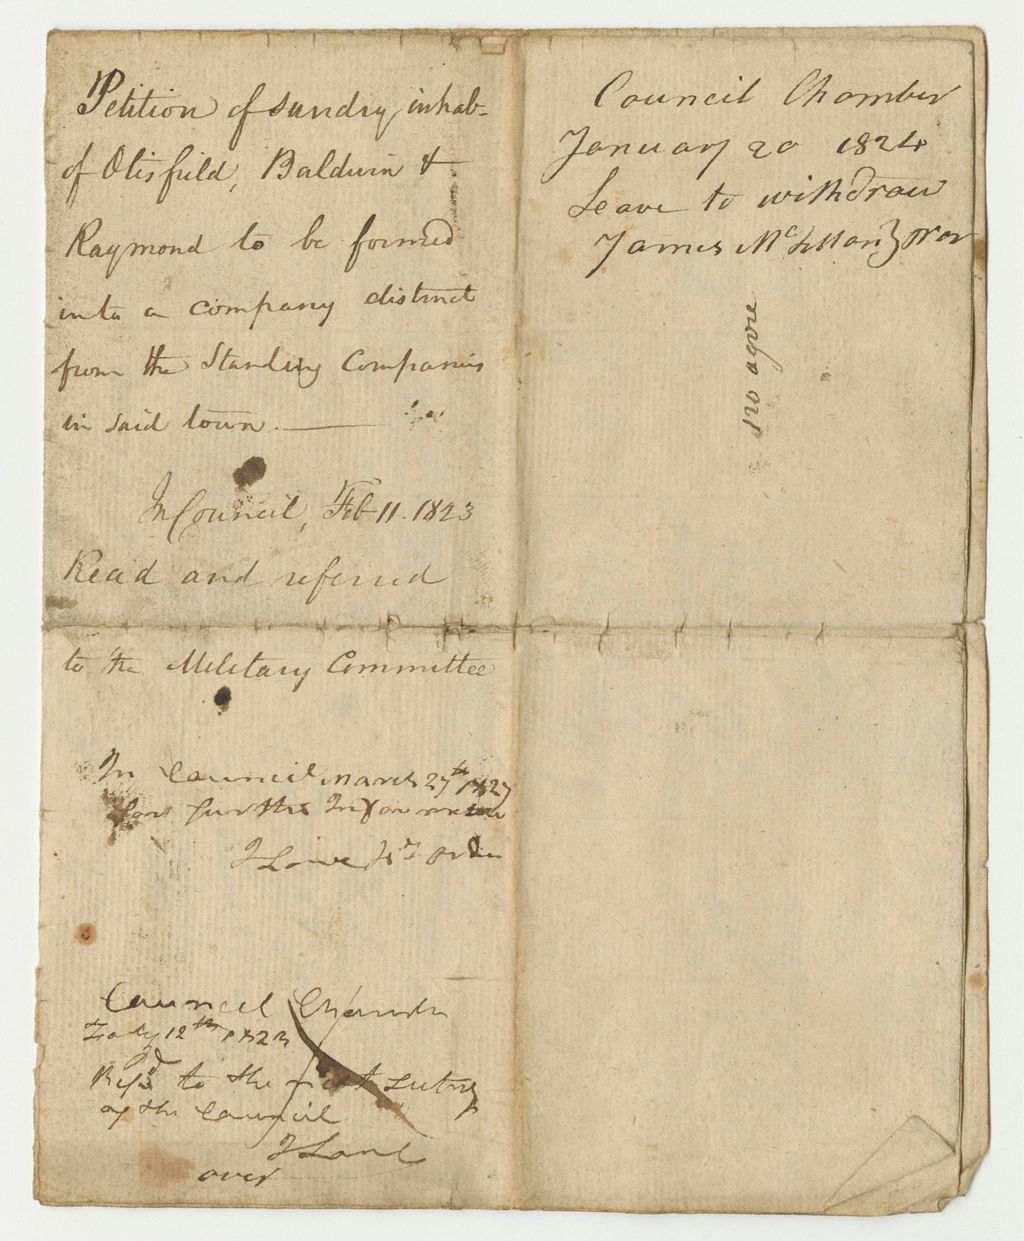 Petition of sundry inhab-
of Otisfield, Baldwin &
Raymond to be formed
into a company distinct
from the Standing Companies
in said town.
In Council, Feb 11. 1823
Read and referred
to the Military Committee
In Council March 27th
for further Information
Council Chamber
12th 1823
Refd to the next
of the Council
over
Council Chamber
January 20 1824
Leave to withdraw
James